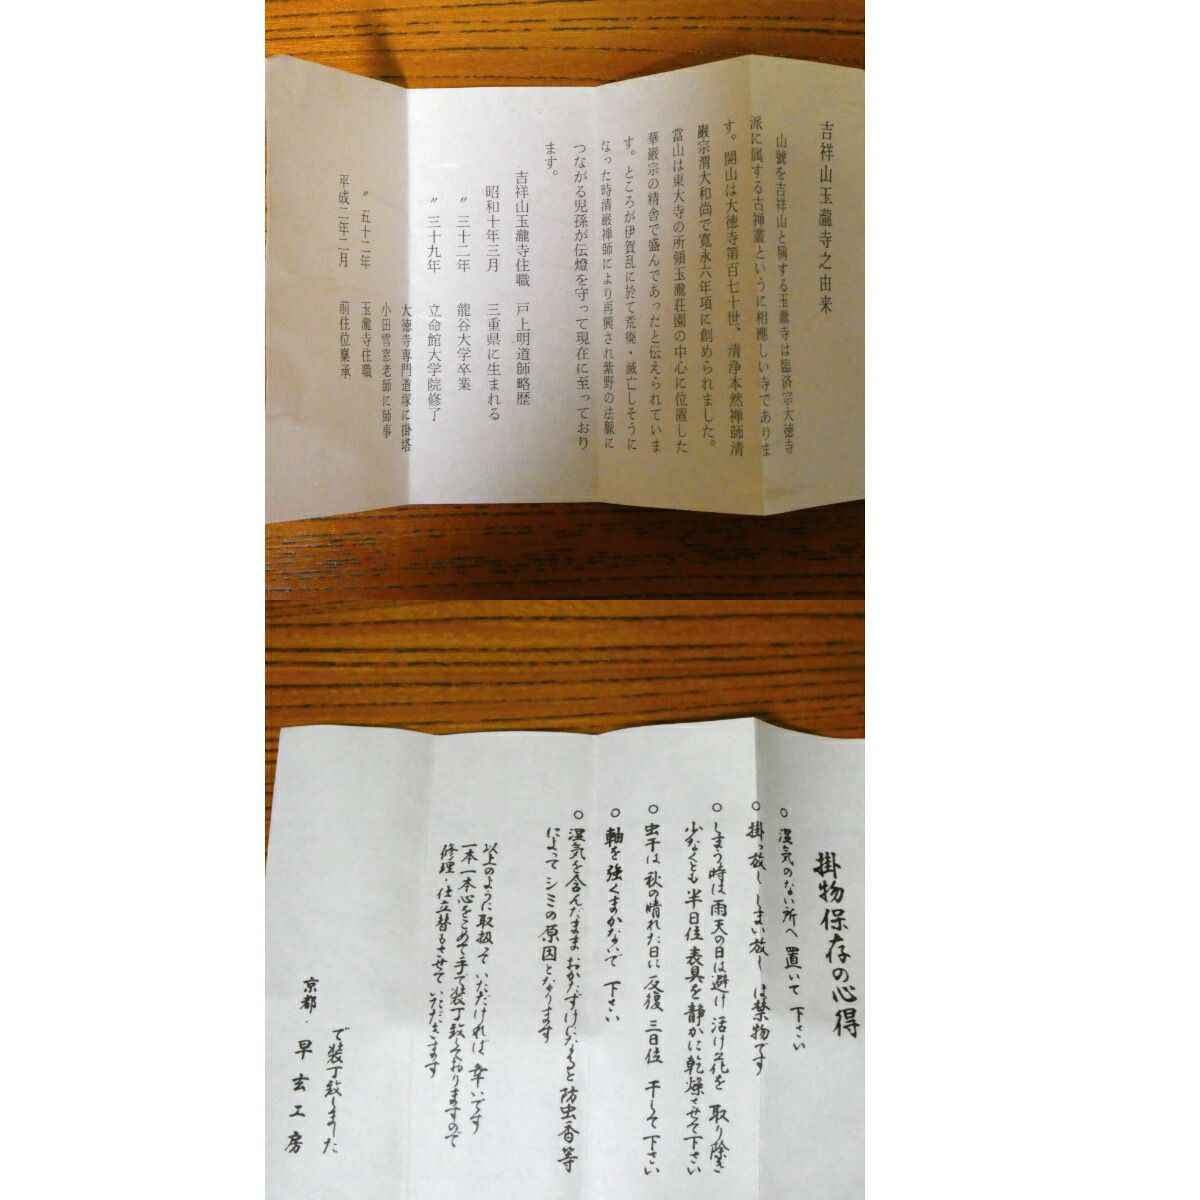 吉祥山玉瀧寺之由来
山號を吉祥山と稱する玉瀧寺は臨済宗大徳寺
派に属する古禅叢というに相應しい寺でありま
す。開山は大徳寺第百七十世、清浄本然禅師清
巌宗渭大和尚で寛永六年項に創められました。
當山は東大寺の所領玉瀧荘園の中心に位置した
華厳宗の精舎で盛んであったと伝えられていま
す。ところが伊賀乱に於て荒廃・滅亡しそうに
なった時清厳禅師により再興され紫野の法脈に
つながる児孫が伝燈を守って現在に至っており
ます。
吉祥山玉瀧寺住職 戸上明道師略歴
昭和十年三月 三重県に生まれる
〃 三十二年 龍谷大学卒業
〃 三十九年 立命館大学院修了
大徳寺専門道塚に掛塔
小田雪窓老師に師事
〃 五十二年 玉瀧寺住職
平成二年二月 前住位稟承
掛物保存の心得
○ 湿気のない所へ置いて下さい
○ 掛っ放し しまい放し は禁物です
○ しまう時は雨天の日は避け 活け花を 取り除き
少なくとも半日位 表具を静かに乾燥させて下さい
○ 虫干は 秋の晴れた日に 反復 三日位 干して下さい
○ 軸を強くまかないで 下さい
○ 湿気を含んだまま おかたずけになると 防虫香等
によって シミの原因となります
以上のように取扱っていただければ 幸いです
一本一本心をこめて手で装丁致しておりますので
修理・仕立替もさせていただきます
で装丁致しました
京都・早玄工房